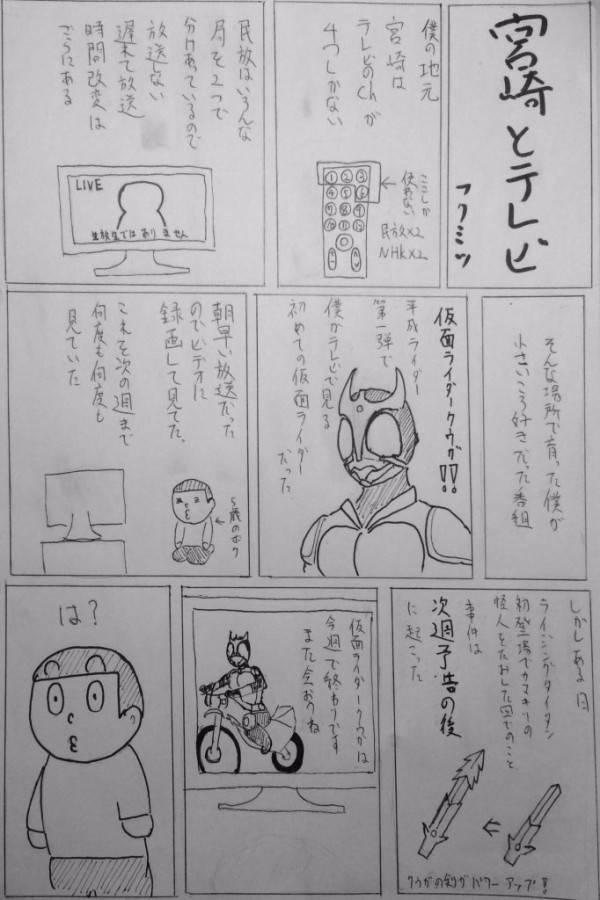 宮崎とテレビ
フクミツ
僕の地元
宮崎は
テレビのChが
4つしかない
ここしか
使わない
民放×2
NHK×2
1
2
3
4
5
6
7
8
9
10
11
12
民放はいろんな
局を2つで
分けあっているので
放送ない
遅れて放送
時間改変は
ごうにある
LIVE
生放送ではありません
そんな場所で育った僕が
小さいころ好きだった番組
仮面ライダークウガ!!
平成ライダー
第一弾で
僕がテレビで見る
初めての仮面ライダー
だった
朝早い放送だった
のでビデオに
録画して見てた。
これを次の週まで
何度も何度も
見ていた
5歳のボク
しかしある日
ライジングタイタン
初登場でカマキリの
怪人をたおした回でのこと
事件は
次週予告の後
に起こった
クウガの剣がパワーアップ!
仮面ライダークウガは
今週で終わりです
また会おうね
は?